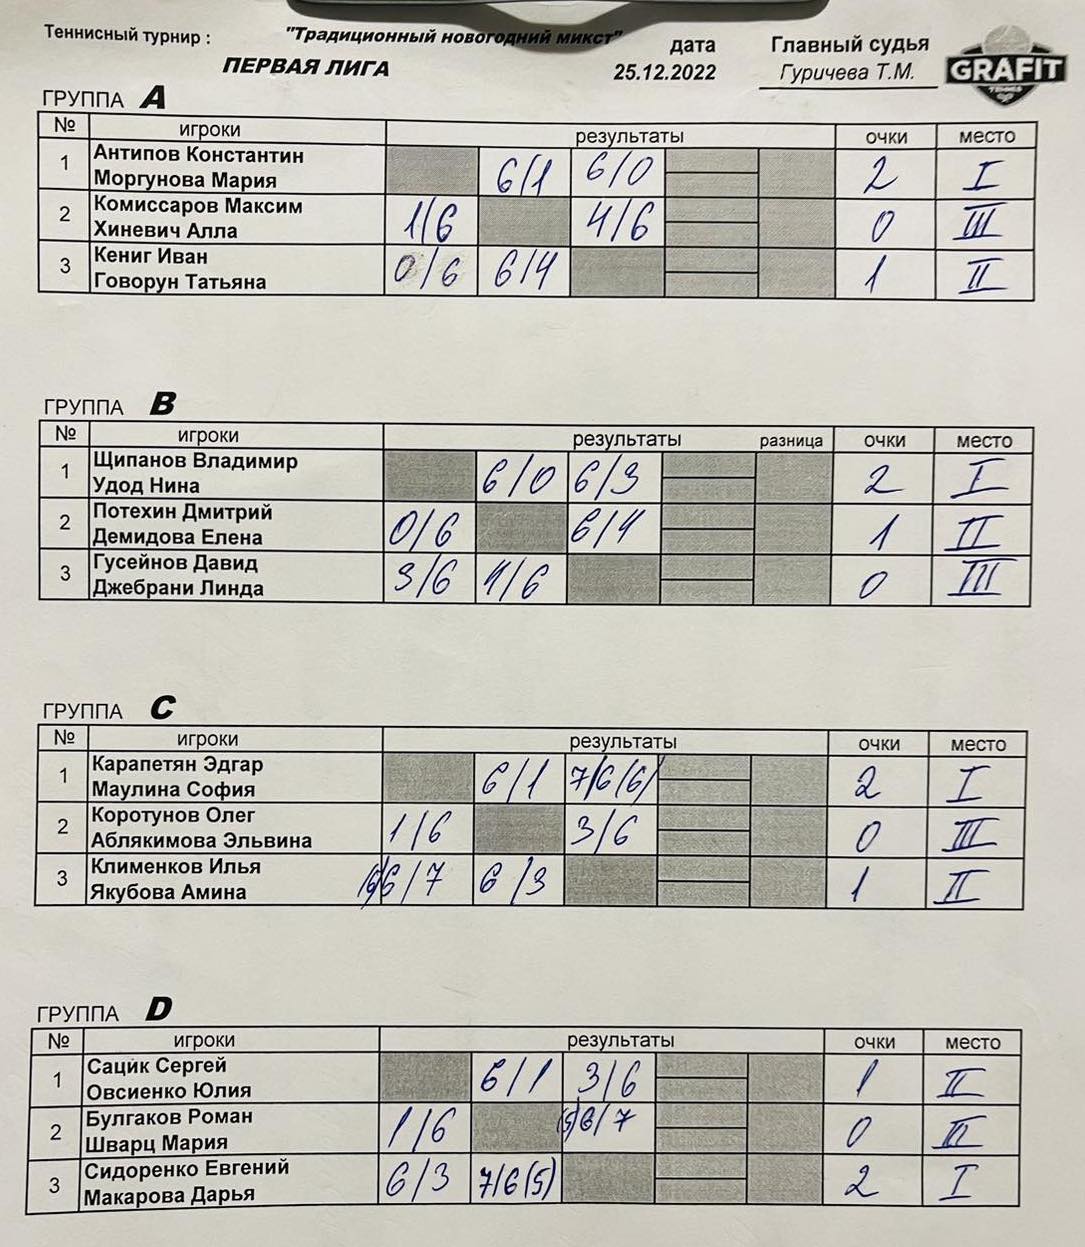 Теннисный турнир : "Традиционный новогодний микст" дата Главный судья
ПЕРВАЯ ЛИГА 25.12.2022 Гуричева Т.М. GRAFIT
ГРУППА A
№ игроки результаты очки место
1 Антипов Константин
Моргунова Мария 6/1 6/0 2 I
2 Комиссаров Максим
Хиневич Алла 1/6 4/6 0 III
3 Кениг Иван
Говорун Татьяна 0/6 6/4 1 II
ГРУППА B
№ игроки результаты разница очки место
1 Щипанов Владимир
Удод Нина 6/0 6/3 2 I
2 Потехин Дмитрий
Демидова Елена 0/6 6/4 1 II
3 Гусейнов Давид
Джебрани Линда 3/6 4/6 0 III
ГРУППА C
№ игроки результаты очки место
1 Карапетян Эдгар
Маулина София 6/1 7/6(6) 2 I
2 Коротунов Олег
Аблякимова Эльвина 1/6 3/6 0 III
3 Клименков Илья
Якубова Амина (6)6/7 6/3 1 II
ГРУППА D
№ игроки результаты очки место
1 Сацик Сергей
Овсиенко Юлия 6/1 3/6 1 II
2 Булгаков Роман
Шварц Мария 1/6 (5)6/7 0 III
3 Сидоренко Евгений
Макарова Дарья 6/3 7/6(5) 2 I